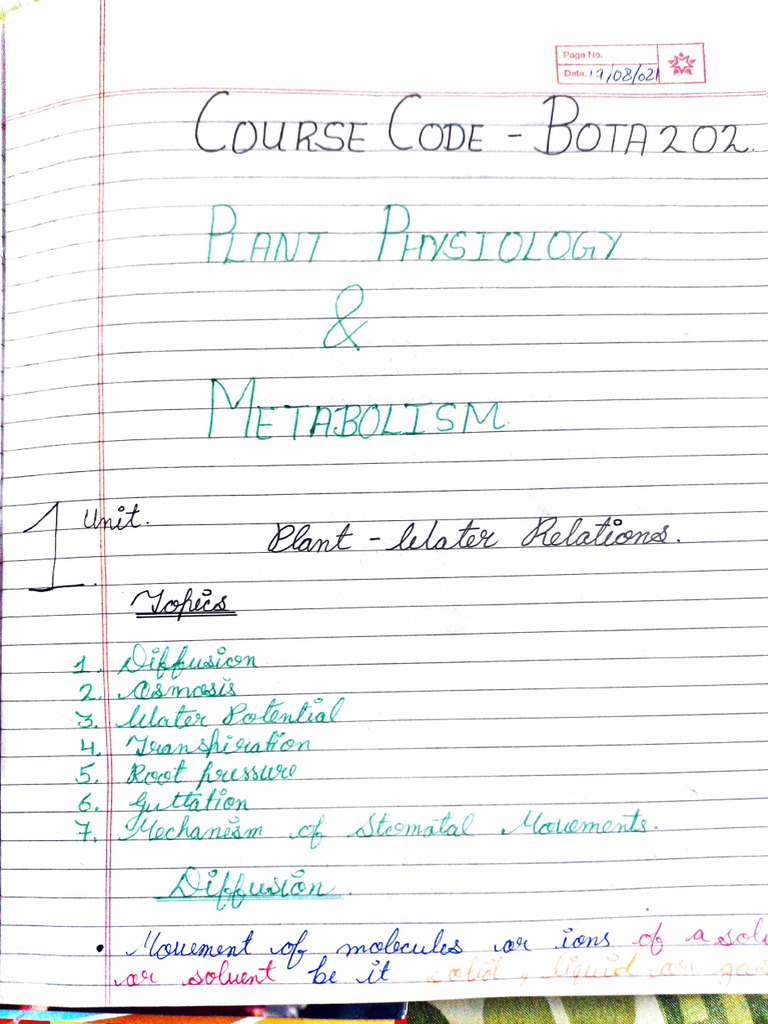 Page No.
Date. 19/08/021
COURSE CODE - BOTA202.
PLANT PHYSIOLOGY
&
METABOLISM
1 Unit.
Plant - Water Relations.
Topics
1. Diffusion
2. Osmosis
3. Water Potential
4. Transpiration
5. Root pressure
6. Guttation
7. Mechanism of Stomatal Movements.
Diffusion.
• Movement of molecules or ions of a
or solvent be it solid, liquid or